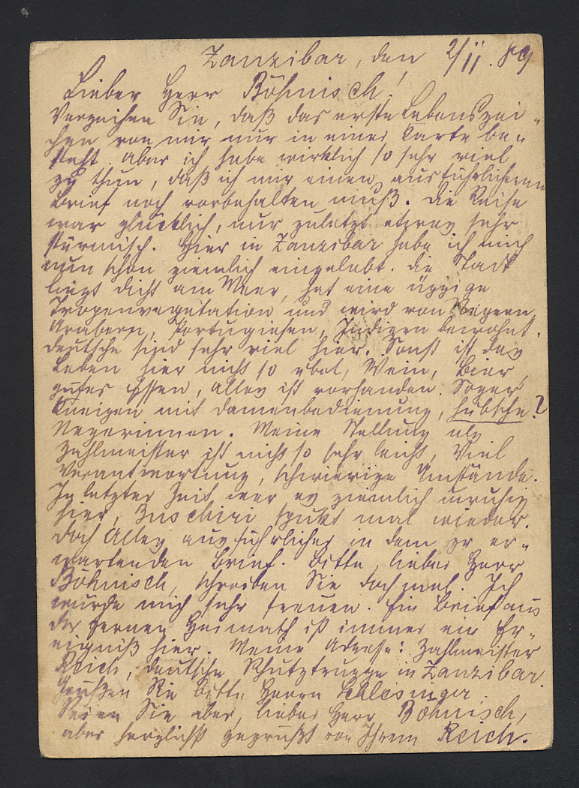 Zanzibar, den 2/11. 89
Lieber Herr Böhnisch!
Verzeihen Sie, daß das erste Lebenszei-
chen von mir nur in einer Karte be-
steht. Aber ich habe wirklich so sehr viel
zu thun, daß ich mir einen ausführlicheren
Brief noch vorbehalten muß. Die Reise
war glücklich, nur zuletzt etwas sehr
stürmisch. Hier in Zanzibar habe ich mich
nun schon ziemlich eingelebt. Die Stadt
liegt dicht am Meer, hat eine üppige
Tropenvegetation und wird von Negern,
Arabern, Portugiesen, Indiern bewohnt.
Deutsche sind sehr viel hier. Sonst ist das
Leben hier nicht so übel, Wein, Bier,
gutes Essen, alles ist vorhanden. Sogar
Kneipen mit Damenbedienung, hübsche?
Negerinnen. Meine Stellung als
Zahlmeister ist nicht so sehr leicht, viel
Verantwortung, schwierige Umstände.
In letzter Zeit war es ziemlich unruhig
hier, Buschiri spukt mal wieder.
Doch Alles ausführlicher in dem zu er-
wartenden Brief. Bitte, lieber Herr
Böhnisch, schreiben Sie doch mal. Ich
würde mich sehr freuen. Ein Brief aus
der fernen Heimath ist immer ein Er-
eigniß hier. Meine Adresse: Zahlmeister
Reich, deutsche Schutztruppe in Zanzibar.
Grüßen Sie bitte Herrn Schlesinger.
Seien Sie aber, lieber Herr Böhnisch,
aber herzlichst gegrüßt von Ihrem Reich.